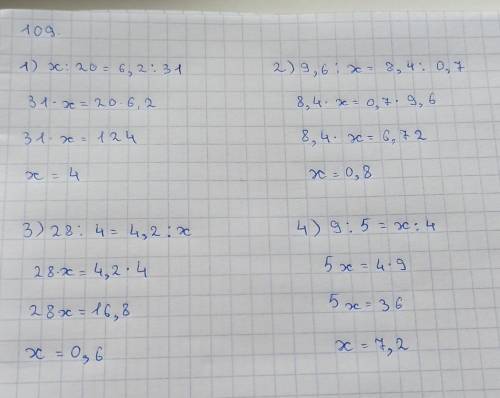 109.
1) x : 20 = 6,2 : 31
31 · x = 20 · 6,2
31 · x = 124
x = 4
2) 9,6 : x = 8,4 : 0,7
8,4 · x = 0,7 · 9,6
8,4 · x = 6,72
x = 0,8
3) 28 : 4 = 4,2 : x
28 · x = 4,2 · 4
28x = 16,8
x = 0,6
4) 9 : 5 = x : 4
5x = 4 · 9
5x = 36
x = 7,2